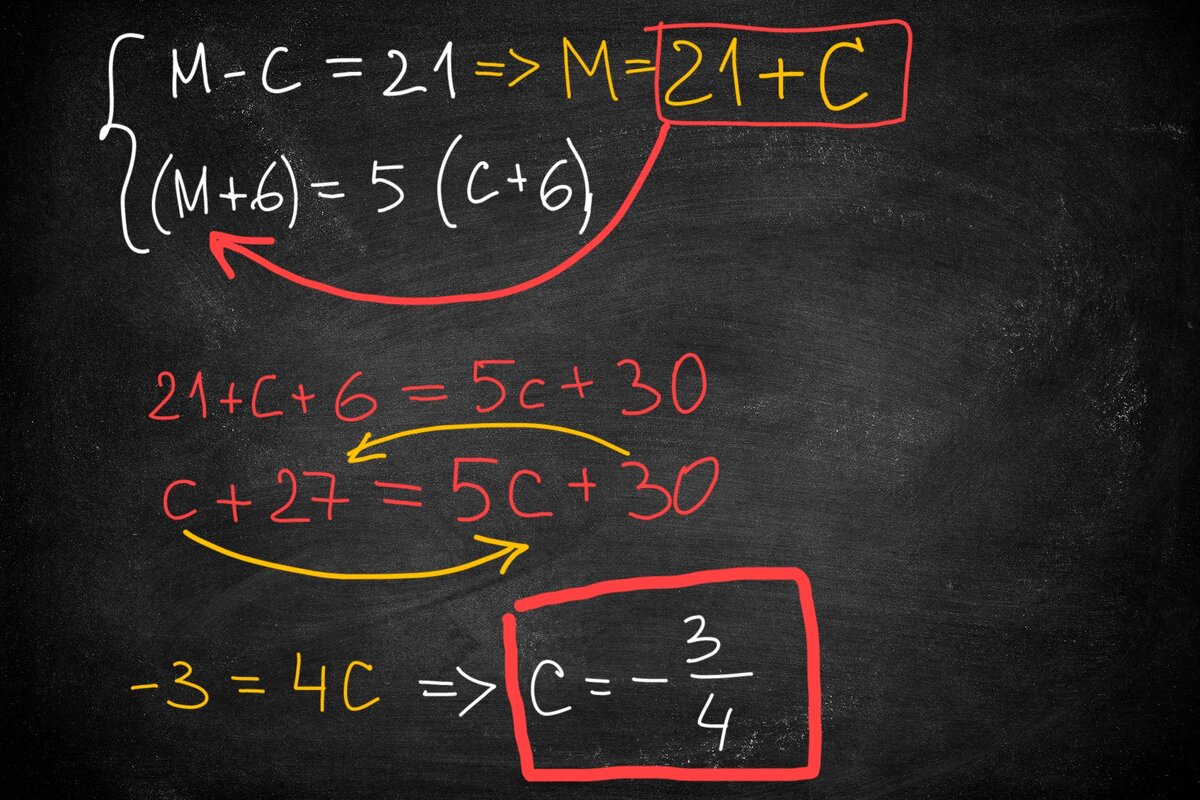 M - C = 21 => M = 21 + C
(M+6) = 5 (C+6)
21+C+6 = 5C+30
C+27 = 5C+30
-3 = 4C => C = -3/4